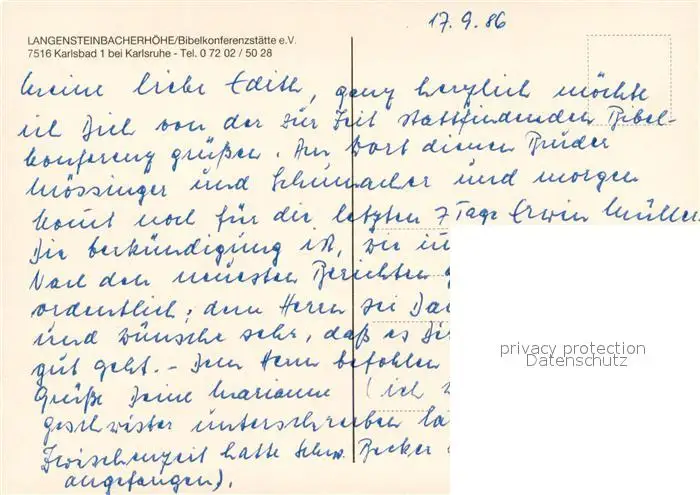 17.9.86
LANGENSTEINBACHERHÖHE/Bibelkonferenzstätte e.V.
7516 Karlsbad 1 bei Karlsruhe - Tel. 0 72 02 / 50 28
Meine liebe Edith, ganz herzlich möchte
ich Dich von der zur Zeit stattfindenden Bibel-
konferenz grüßen. Am Wort dienen Brüder
Mössinger und Schumacher und morgen
kommt noch für die letzten 7 Tage Erwin Müller.
Die Verkündigung ist, wie im
Nach den neuesten Berichten
ordentlich; dem Herrn sei Dan
und wünsche sehr, daß es Dir
gut geht. - Dem Herrn befohlen
Grüße Deine Marianne (ich
geschwister unterschreiben la
Zwischenzeit hatte Schw. Becker
angefangen).
privacy protection
Datenschutz